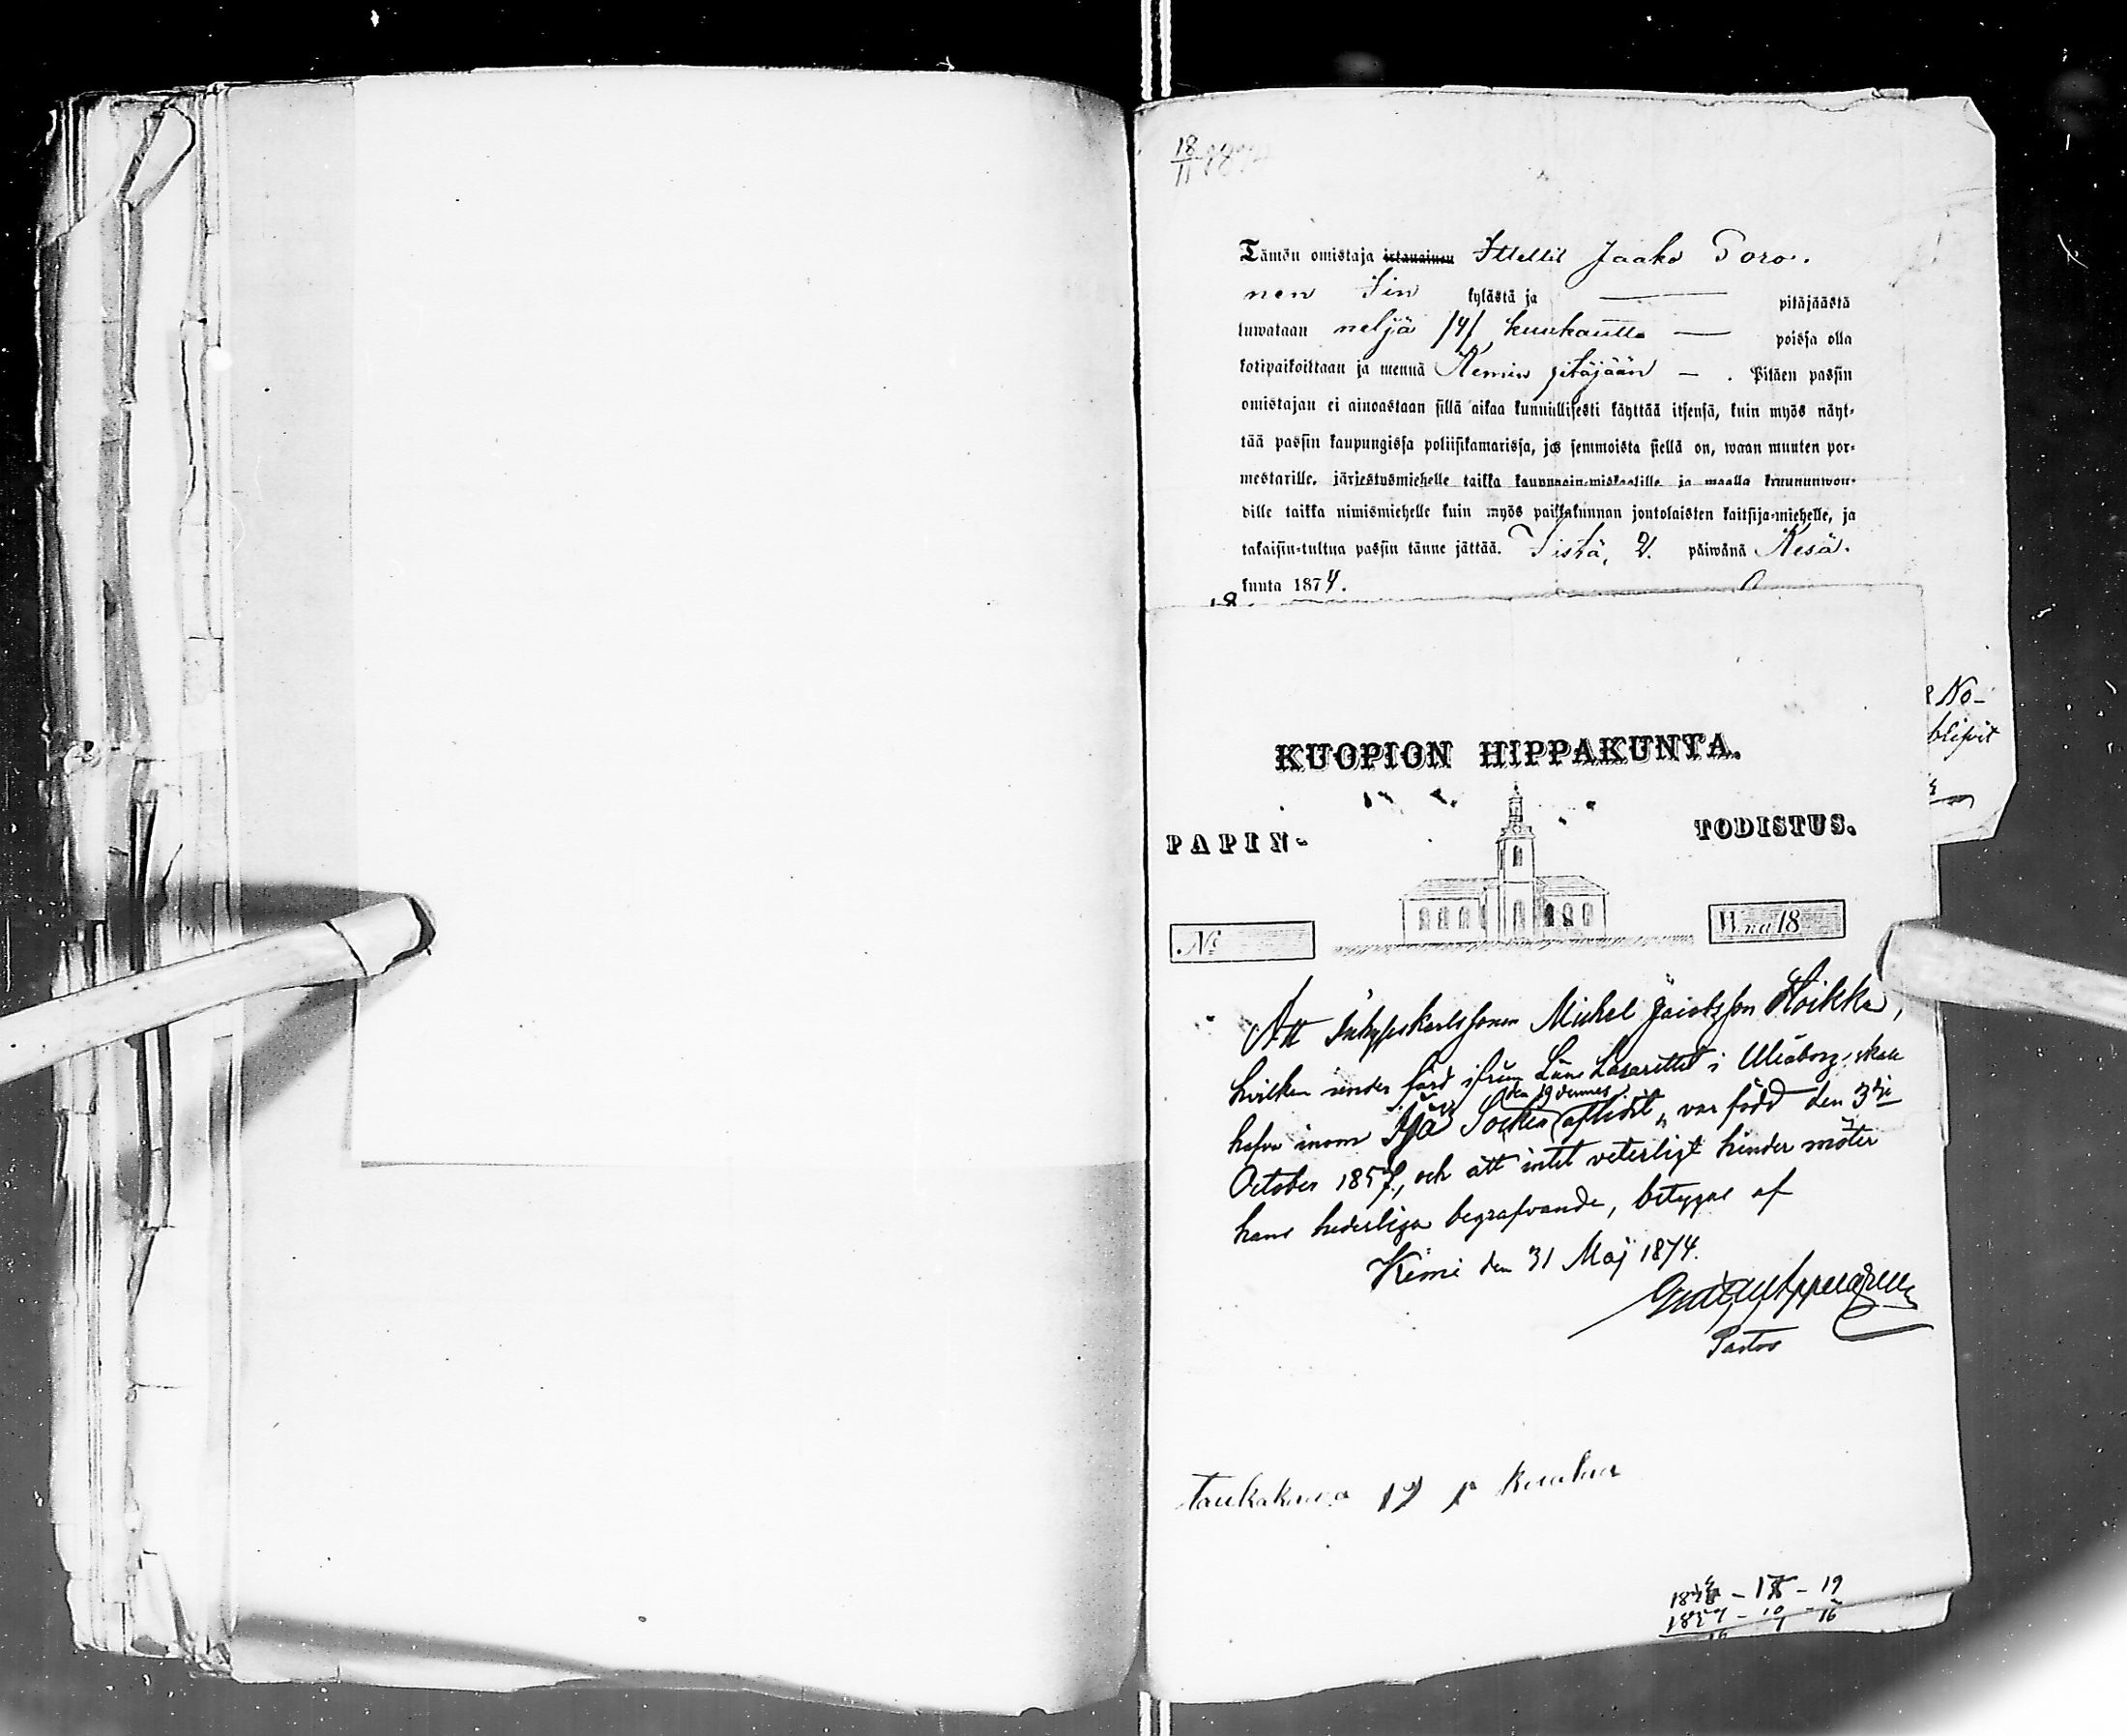 18
11
Tämän omistaja irtanainen Ittellit Jaako Poro-
nen Iin kylästä ja — pitäjäästä
luwataan neljä /4/ kuukautta — poissa olla
kotipaikoiltaan ja mennä Kemin pitäjään — . Pitäen passin
omistajan ei ainoastaan sillä aikaa kunniallisesti käyttää itsensä, kuin myös näyt-
tää passin kaupungissa poliisikamarissa, jos semmoista siellä on, waan muuten por-
mestarille, järjestysmiehelle taikka kaupungin-wiskaalille ja maalla kruununwou-
dille taikka nimismiehelle kuin myös paikkakunnan joutolaisten kaitsija-miehelle, ja
takaisin-tultua passin tänne jättää. Iistä, 2. päiwänä Kesä-
kuuta 1874.
18
No-
blifvit
KUOPION HIPPAKUNTA.
PAPIN- TODISTUS.
No Wna 18
Att Inhyseskarlssonen Michel Jacobsson Hoikka,
hvilken under färd ifrån Läns Lasarettet i Uleåborg skall
hafva inom Ijå Socken den 19 dennes aflidit, var född den 3die
October 1857, och att intet veterligt hinder möter
hans hederliga begrafvande, betygas af
Kemi den 31 Maj 1874.
Pastor
19
1857 - 10 - 16